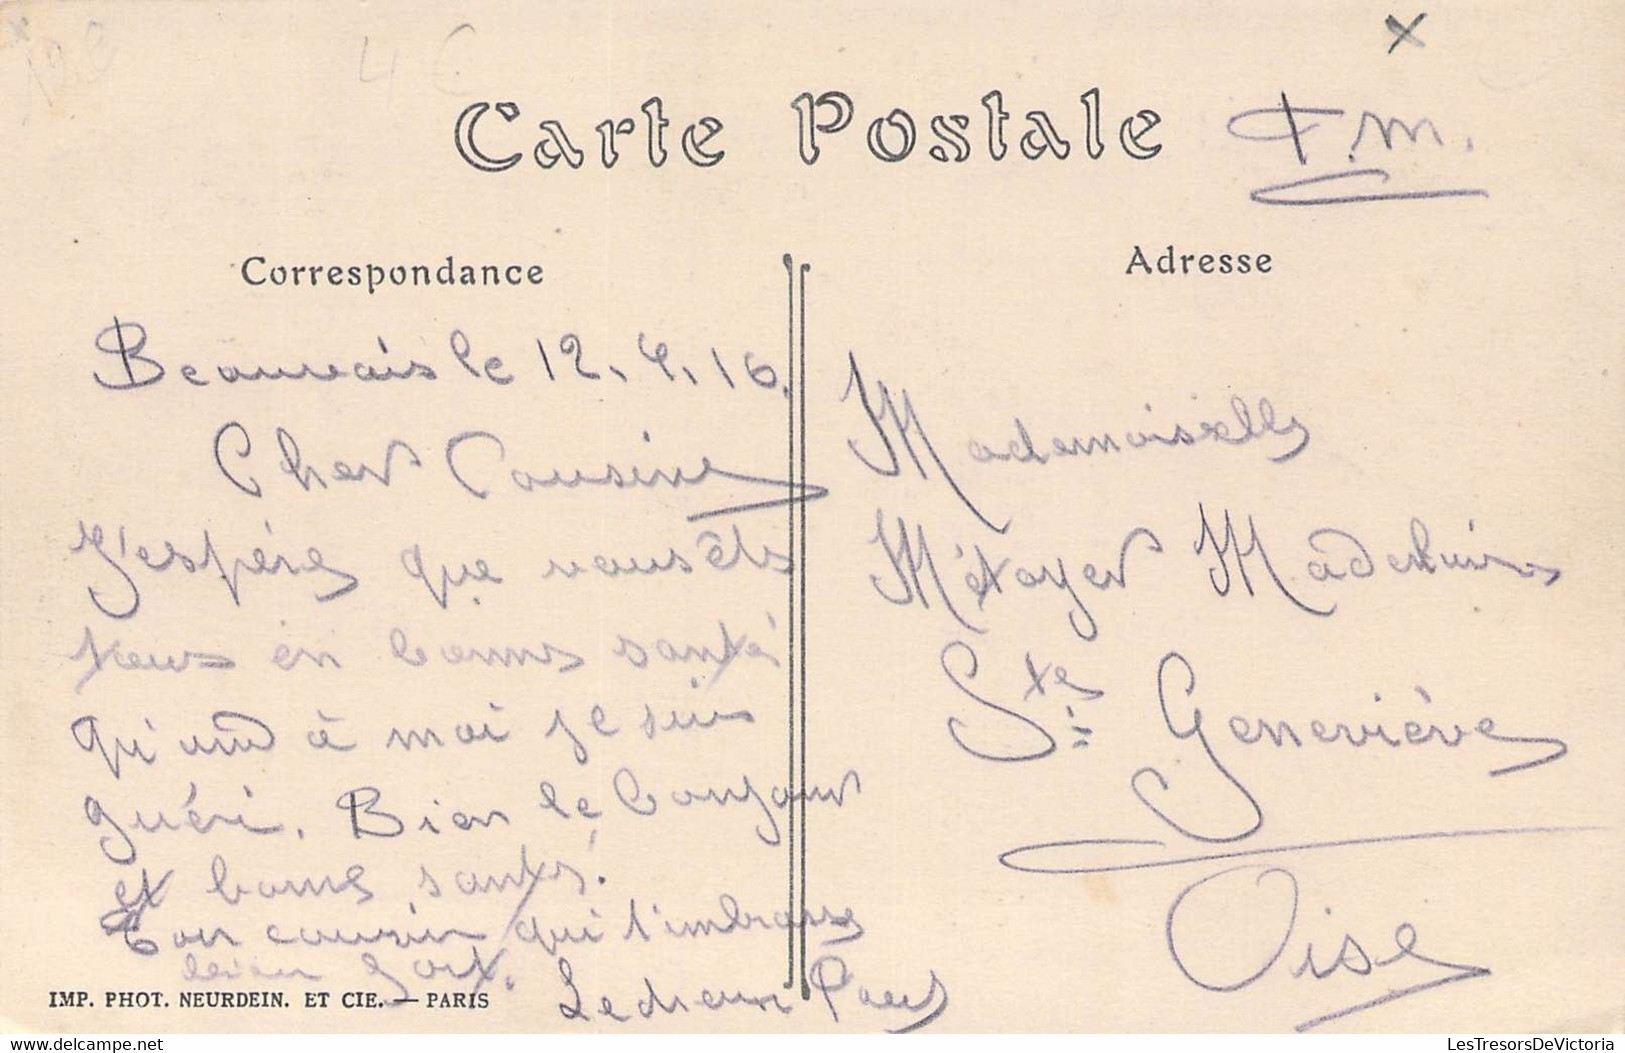 4 €
Carte Postale
F.M.
Correspondance
Adresse
Beauvais le 12.4.16.
Cher Cousine
J'espére que vous êts
tous en bonns santé
qu'and à moi je suis
guéri. Bien le bonjour
et bonne santé.
Ton cousin qui t'imbrasse
bien fort. Ledieux Paul
Mademoiselle
Métayer Madeleine
Ste Geneviève
Oise
IMP. PHOT. NEURDEIN. ET CIE. — PARIS
LesTresorsDeVictoria